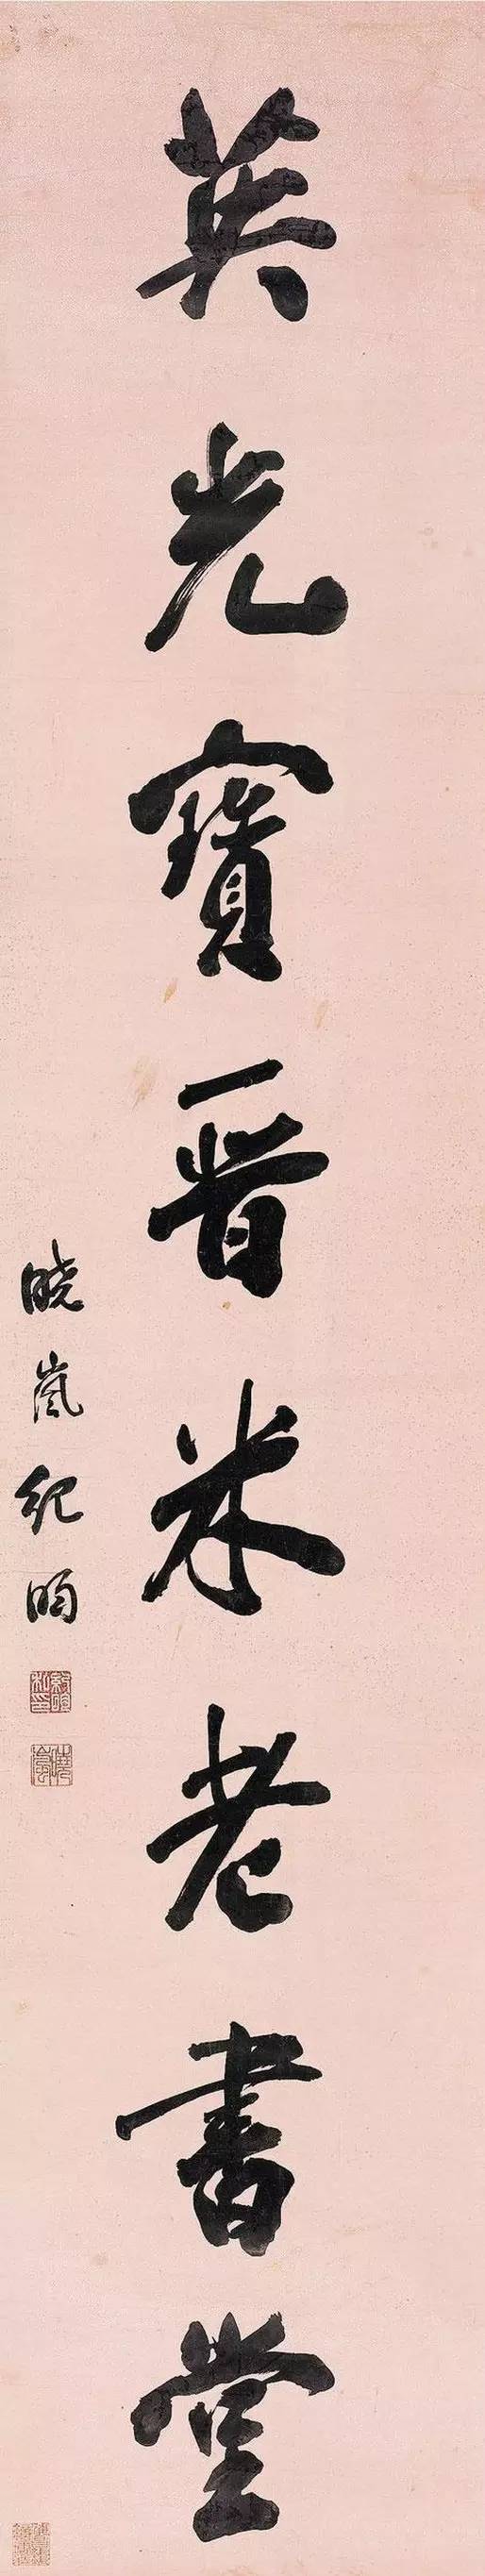 英光寶晉米老書堂
曉嵐紀昀